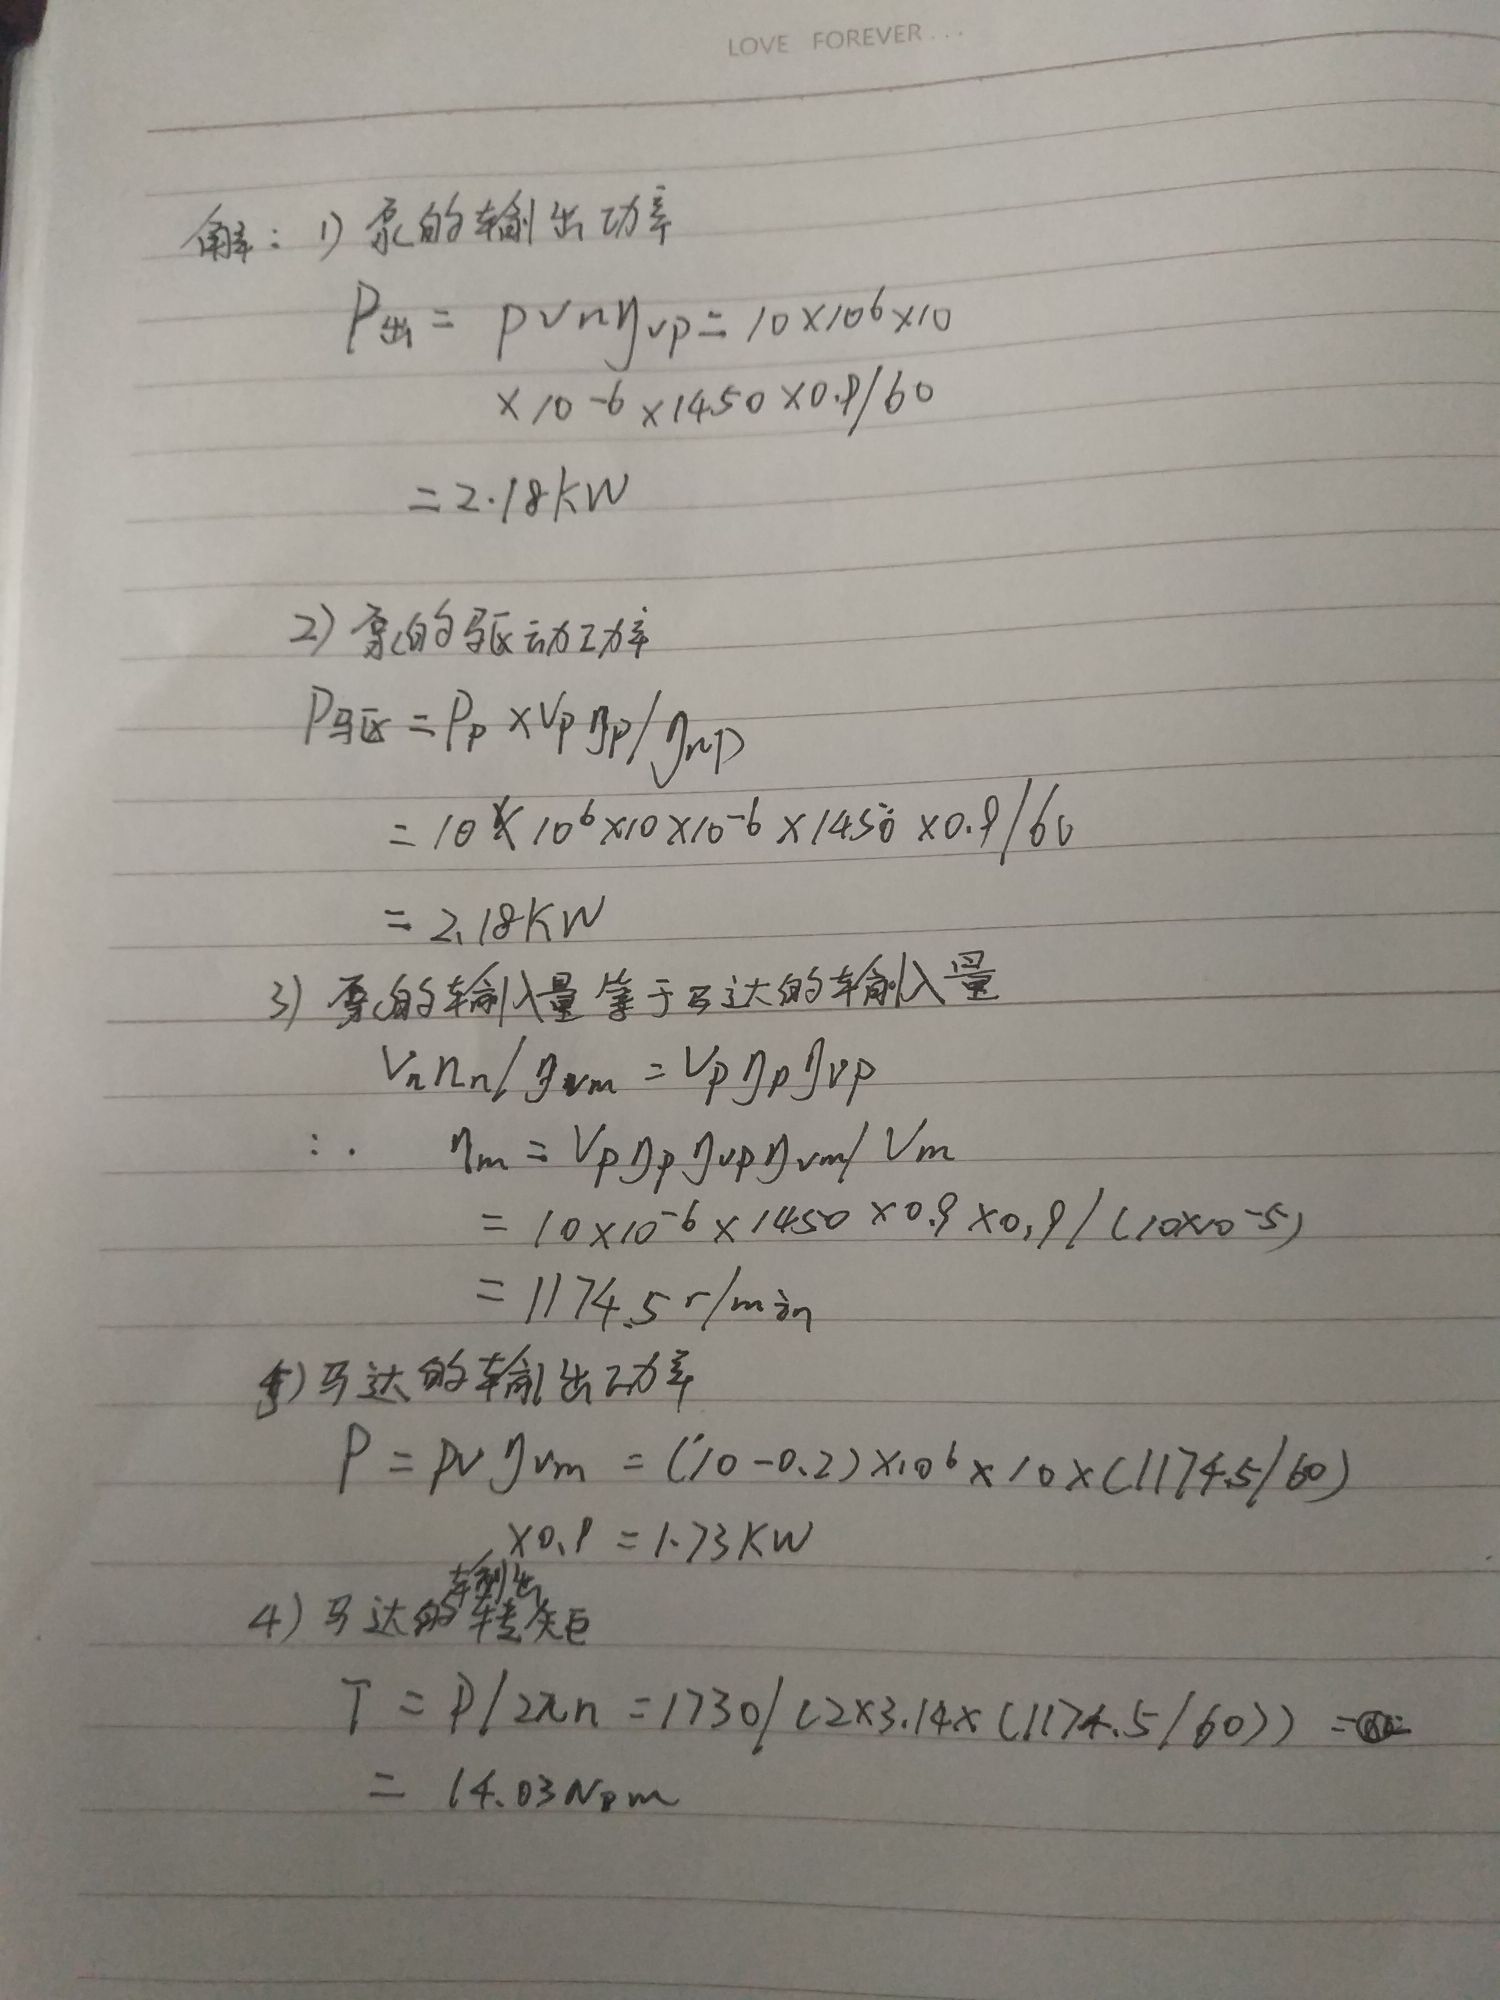 LOVE FOREVER...
解：1) 泵的输出功率
P出 = pVnηvp = 10×10^6×10
×10^-6×1450×0.9/60
=2.18KW
2) 泵的驱动功率
P驱 = Pp×Vpηp/ηmp
=10×10^6×10×10^-6×1450×0.9/60
=2.18KW
3) 泵的输入量等于马达的输入量
Vnnn/ηvm = Vpηpηvp
∴ nm = Vpηpηvpηvm/Vm
=10×10^-6×1450×0.9×0.9/(10×10^-5)
=1174.5r/min
5) 马达的输出功率
P = pvηvm = (10-0.2)×10^6×10×(1174.5/60)
×0.9=1.73KW
4) 马达的输出转矩
T = P/2πn =1730/(2×3.14×(1174.5/60)) =
= 14.03N·m